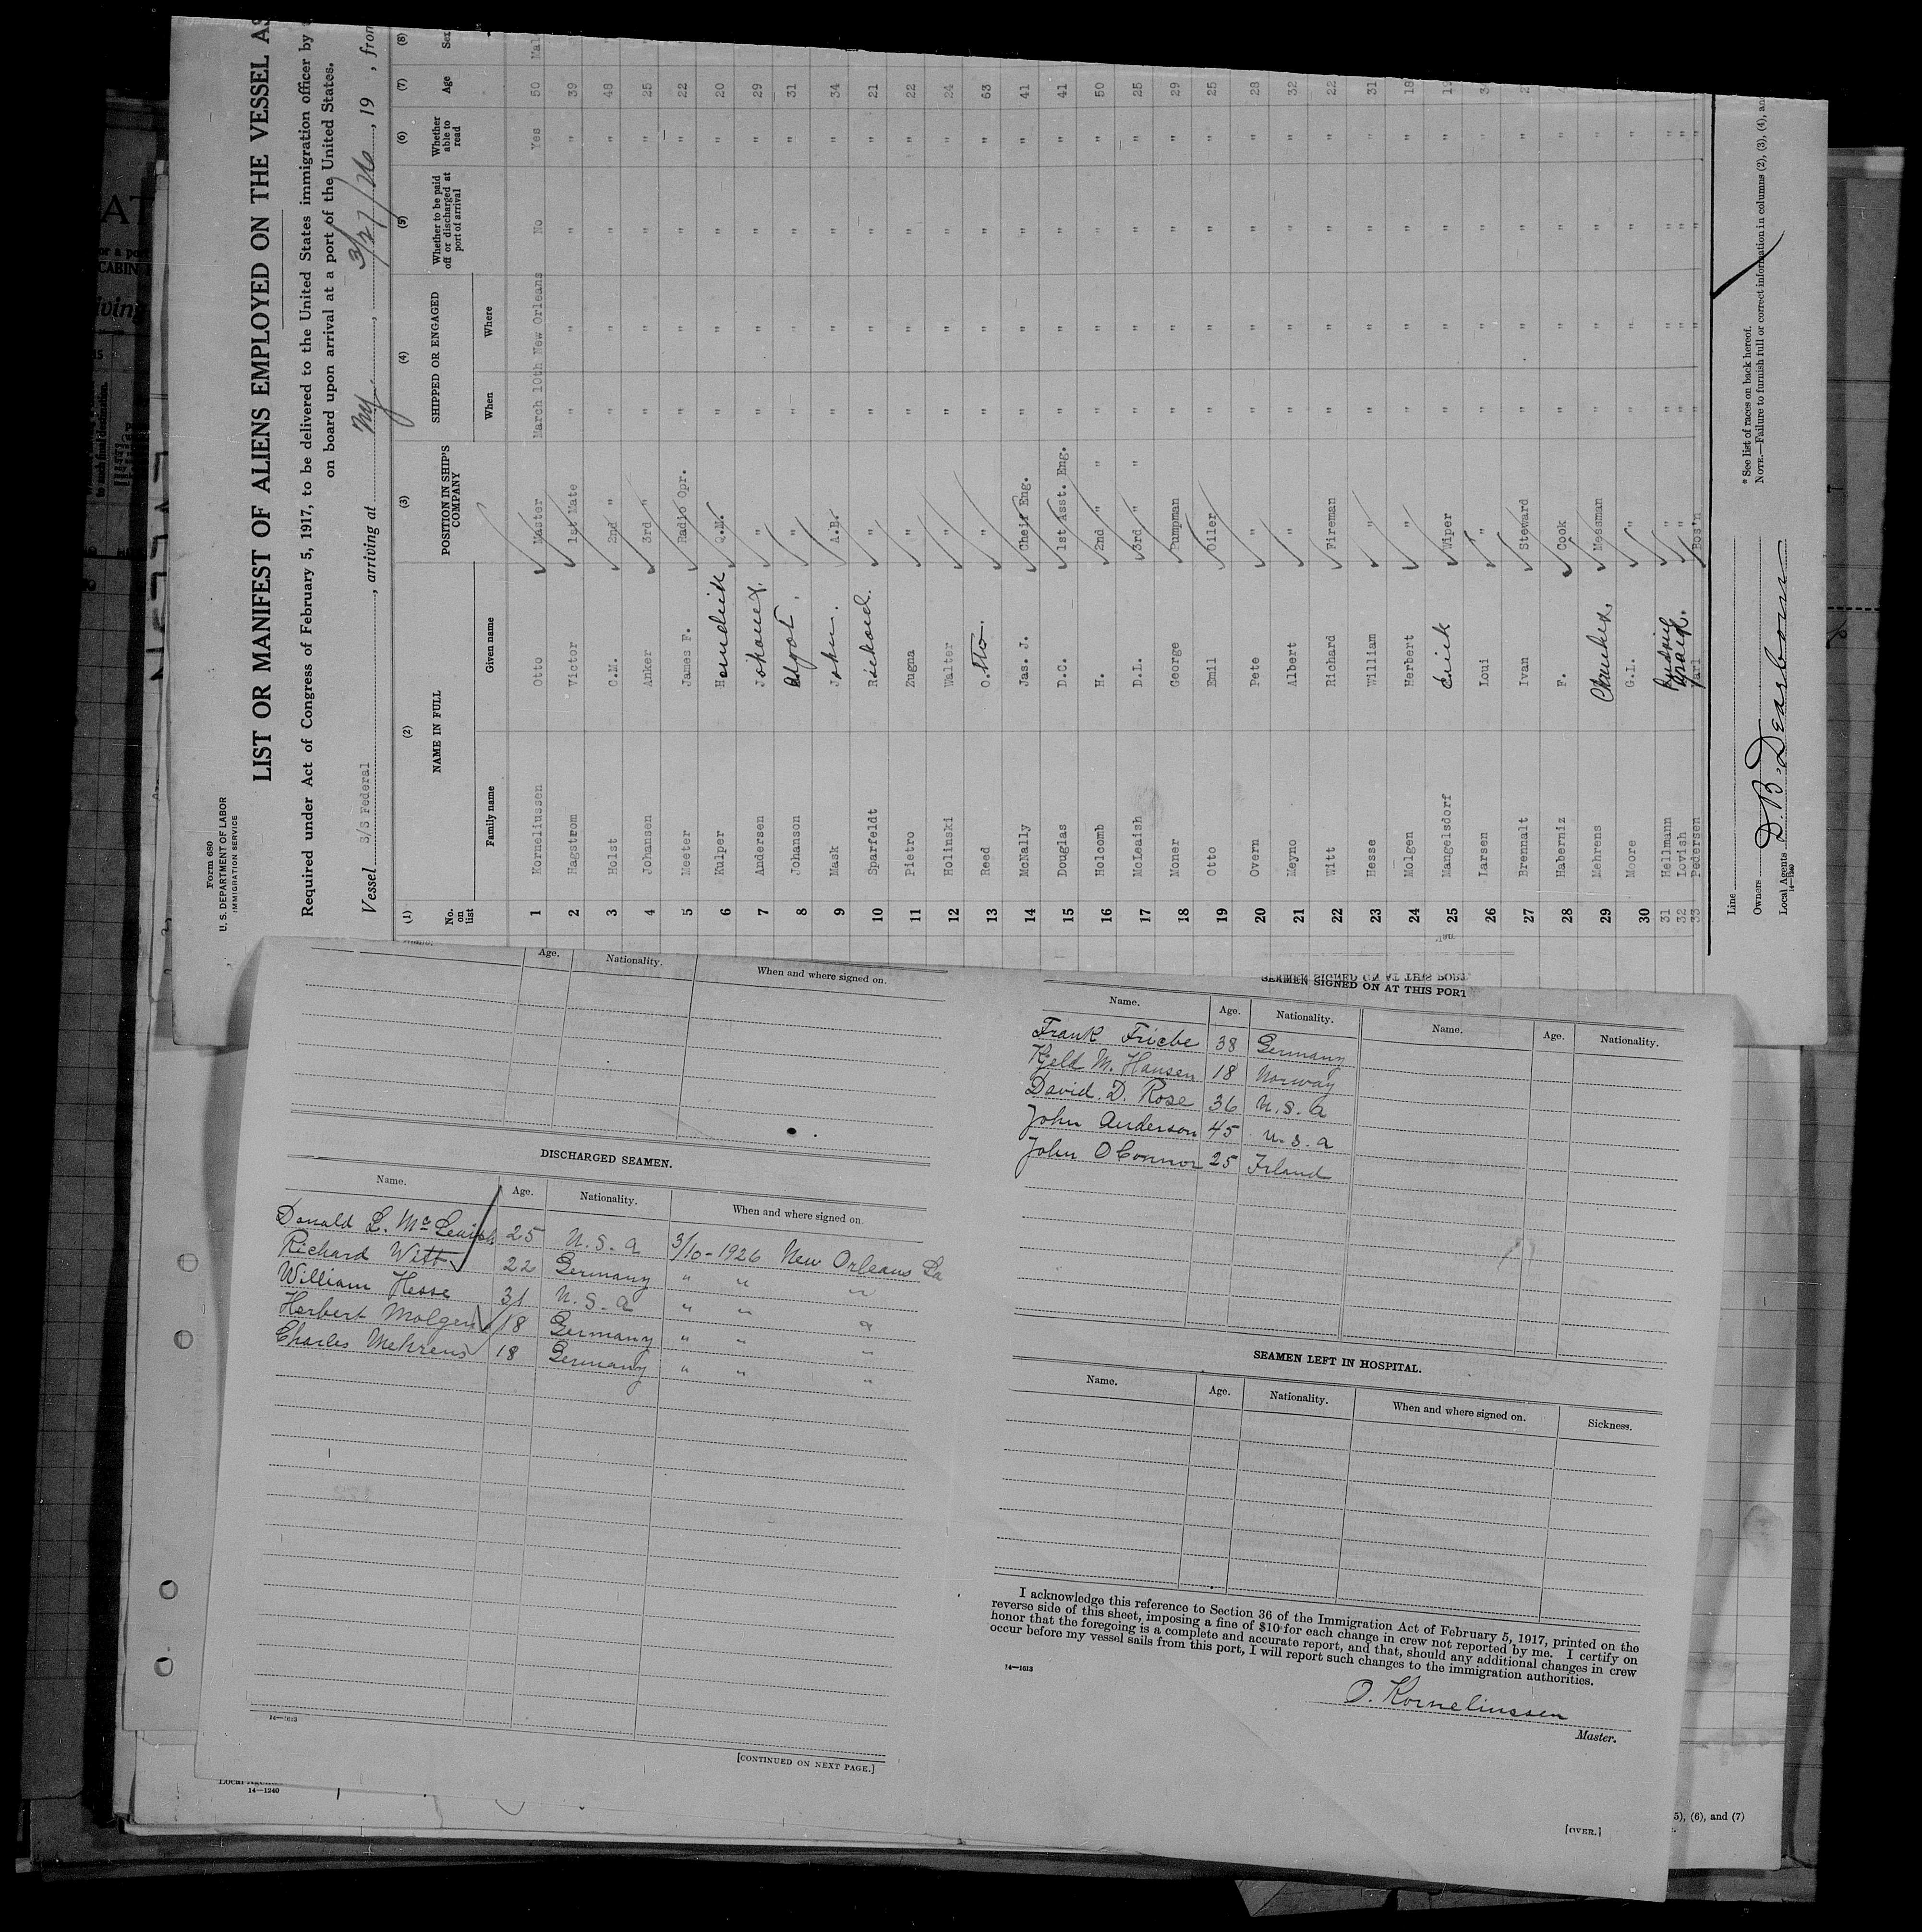 Form 680
U. S. DEPARTMENT OF LABOR
IMMIGRATION SERVICE
LIST OR MANIFEST OF ALIENS EMPLOYED ON THE VESSEL AS
Required under Act of Congress of February 5, 1917, to be delivered to the United States immigration officer by
on board upon arrival at a port of the United States.
Vessel S/S Federal, arriving at NY, 3/27/26, 19 , from
(1) (2) (3) (4) (5) (6) (7) (8)
No. on list NAME IN FULL POSITION IN SHIP'S COMPANY SHIPPED OR ENGAGED Whether to be paid off or discharged at port of arrival Whether able to read Age Sex
Family name Given name When Where
1 Korneliussen Otto Master March 10th New Orleans No Yes 50 Mal
2 Hagstrom Victor 1st Mate " " " " 39 "
3 Holst C.M. 2nd " " " " " 48 "
4 Johansen Anker 3rd " " " " " 25 "
5 Meeter James F. Radio Opr. " " " " 22
6 Kulper Hendrick Q.M. " " " " 20
7 Andersen Johannes. " " " " " 29
8 Johanson Algot. " " " " " 31
9 Mask John. A.B. " " " " 34
10 Sparfeldt Richard. " " " " " 21
11 Pietro Zugna " " " " " 22
12 Holinski Walter " " " " " 24
13 Reed Otto. " " " " " 63
14 McNally Jas. J. Cheif Eng. " " " " 41
15 Douglas D.C. 1st Asst. Eng. " " " " 41
16 Holcomb H. 2nd " " " " " " 50
17 McLeaish D.L. 3rd " " " " " 25
18 Moner George Pumpman " " " " 29
19 Otto Emil Oiler " " " " 25
20 Overn Pete " " " " " 28
21 Meyno Albert " " " " " 32
22 Witt Richard Fireman " " " " 22
23 Hesse William " " " " " 31
24 Molgen Herbert " " " " " 18
25 Mangelsdorf Erick Wiper " " " "
26 Larsen Loui " " " " "
27 Brennalt Ivan Steward " " " "
28 Haberniz F. Cook " " " "
29 Mehrens Charles. Messman " " " "
30 Moore G.L. " " " " "
31 Hellmann " " " " "
32 Lovish " " " " "
33 Pedersen Karl Bos'n " " " "
Line
Owners
Local Agents D. B. Dearborn
14—1240
* See list of races on back hereof.
NOTE.—Failure to furnish full or correct information in columns (2), (3), (4), and
Age. Nationality. When and where signed on.
DISCHARGED SEAMEN.
Name. Age. Nationality. When and where signed on.
Donald L. McLeaish 25 U. S. a 3/10-1926 New Orleans La
Richard Witt 22 Germany " " "
William Hesse 31 U. S. a " " "
Herbert Molgen 18 Germany " " "
Charles Mehrens 18 Germany " " "
14—1613
[CONTINUED ON NEXT PAGE.]
SEAMEN SIGNED ON AT THIS PORT
Name. Age. Nationality. Name. Age. Nationality.
Frank Friebe 38 Germany
Kjeld M. Hansen 18 Norway
David. D. Rose 36 U. S. a
John Anderson 45 U. S. a
John OConnor 25 Irland
SEAMEN LEFT IN HOSPITAL.
Name. Age. Nationality. When and where signed on. Sickness.
I acknowledge this reference to Section 36 of the Immigration Act of February 5, 1917, printed on the
reverse side of this sheet, imposing a fine of $10 for each change in crew not reported by me. I certify on
honor that the foregoing is a complete and accurate report, and that, should any additional changes in crew
occur before my vessel sails from this port, I will report such changes to the immigration authorities.
14—1613
O. Korneliussen
Master.
[OVER.]
Local Agents
14—1240
5), (6), and (7)